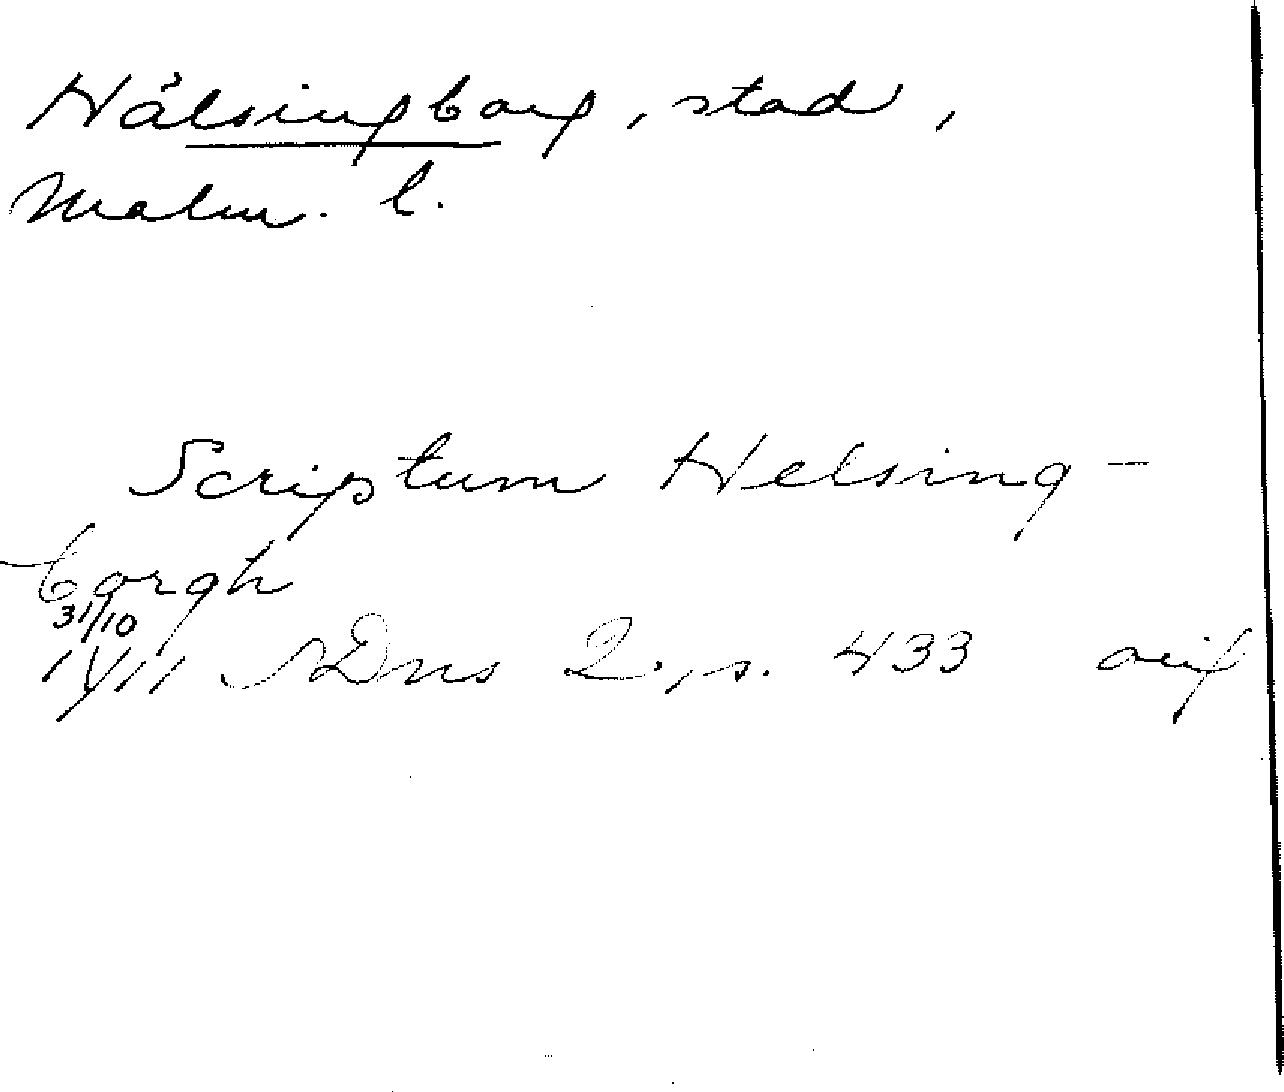 Hälsingborg, stad,
Malm. l.
Scriptum Helsing-
borgh
31/10
1411 SDns 2, s. 433 orig